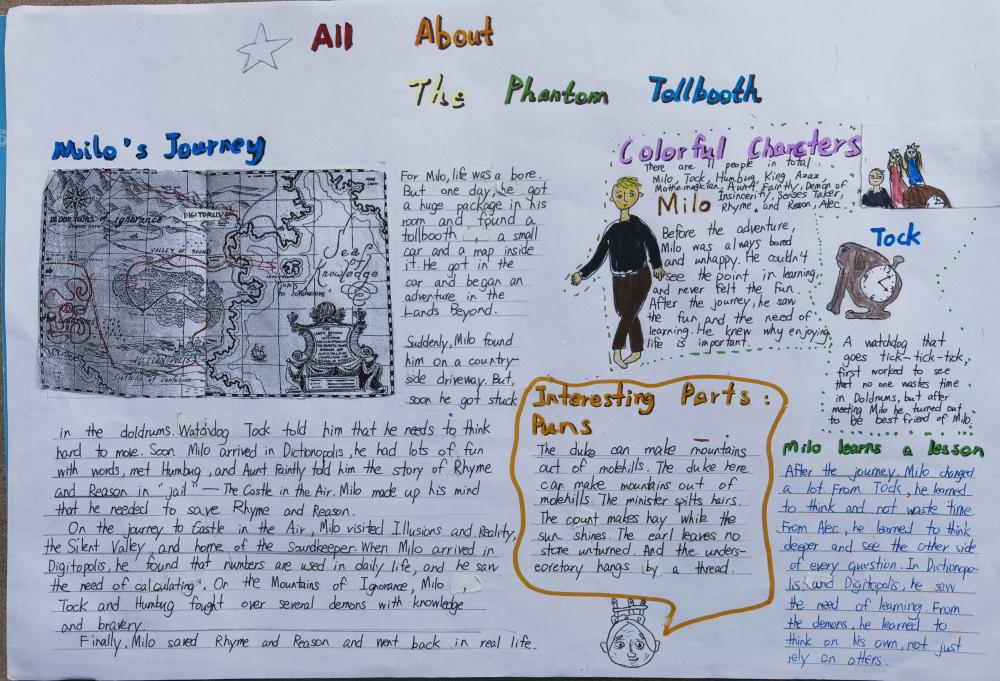 All About
The Phantom Tollbooth
Milo's Journey
DIGITOPOLIS
Sea of Knowledge
For Milo, life was a bore.
But one day, he got
a huge package in his
room and found a
tollbooth, a small
car and a map inside
it. He got in the
car and began an
adventure in the
Lands Beyond.
Suddenly, Milo found
him on a country-
side driveway. But,
soon he got stuck
in the doldrums. Watchdog Tock told him that he needs to think
hard to move. Soon Milo arrived in Dictionopolis, he had lots of fun
with words, met Humbug, and Aunt Faintly told him the story of Rhyme
and Reason in "jail" — The Castle in the Air. Milo made up his mind
that he needed to save Rhyme and Reason.
On the journey to Castle in the Air, Milo visited Illusions and Reality,
the Silent Valley, and home of the Soundkeeper. When Milo arrived in
Digitopolis, he found that numbers are used in daily life, and he saw
the need of calculating. On the Mountains of Ignorance, Milo,
Tock and Humbug fought over several demons with knowledge
and bravery.
Finally, Milo saved Rhyme and Reason and went back in real life.
Colorful Charcters
There are 11 people in total:
Milo, Tock, Humbug, King, Azaz,
Mathemagician, Aunt Faintly, Demon of
Insincerity, Senses Taker,
Rhyme, and Reason, Alec.
Milo
Before the adventure,
Milo was always bored
and unhappy. He couldn't
see the point in learning,
and never felt the fun.
After the journey, he saw
the fun and the need of
learning. He knew why enjoying
life is important.
Tock
A watchdog that
goes tick-tick-tok,
first worked to see
that no one wastes time
in Doldrums, but after
meeting Milo he turned out
to be best friend of Milo.
Interesting Parts:
Puns
The duke can make mountains
out of molehills. The duke here
can make mountains out of
molehills. The minister spilts hairs.
The count makes hay while the
sun shines. The earl leaves no
stone unturned. And the unders-
ecretary hangs by a thread.
Milo learns a lesson
After the journey, Milo changed
a lot. From Tock, he learned
to think and not waste time
From Alec, he learned to think
deeper and see the other side
of every question. In Dictionopo-
lis, and Digitopolis, he saw
the need of learning. From
the demons, he learned to
think on his own, not just
rely on others.